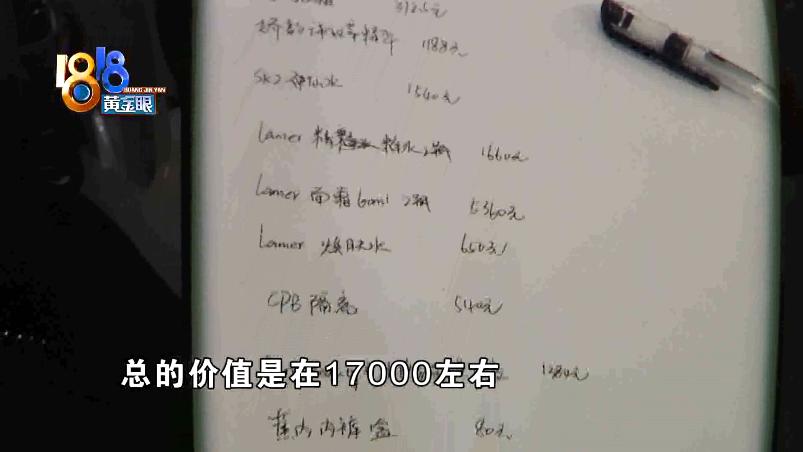 312.5元
娇韵诗双萃精华 1188元
1818
HUANG JIN YAN
黄金眼
SK2 神仙水 1540元
Lamer 精粹水 2瓶 1660元
Lamer 面霜 60ml 2瓶 5360元
Lamer 焕肤水 650元
CPB 隔离 540元
1280元
总的价值是在17000左右
蕉内内裤盒 80元